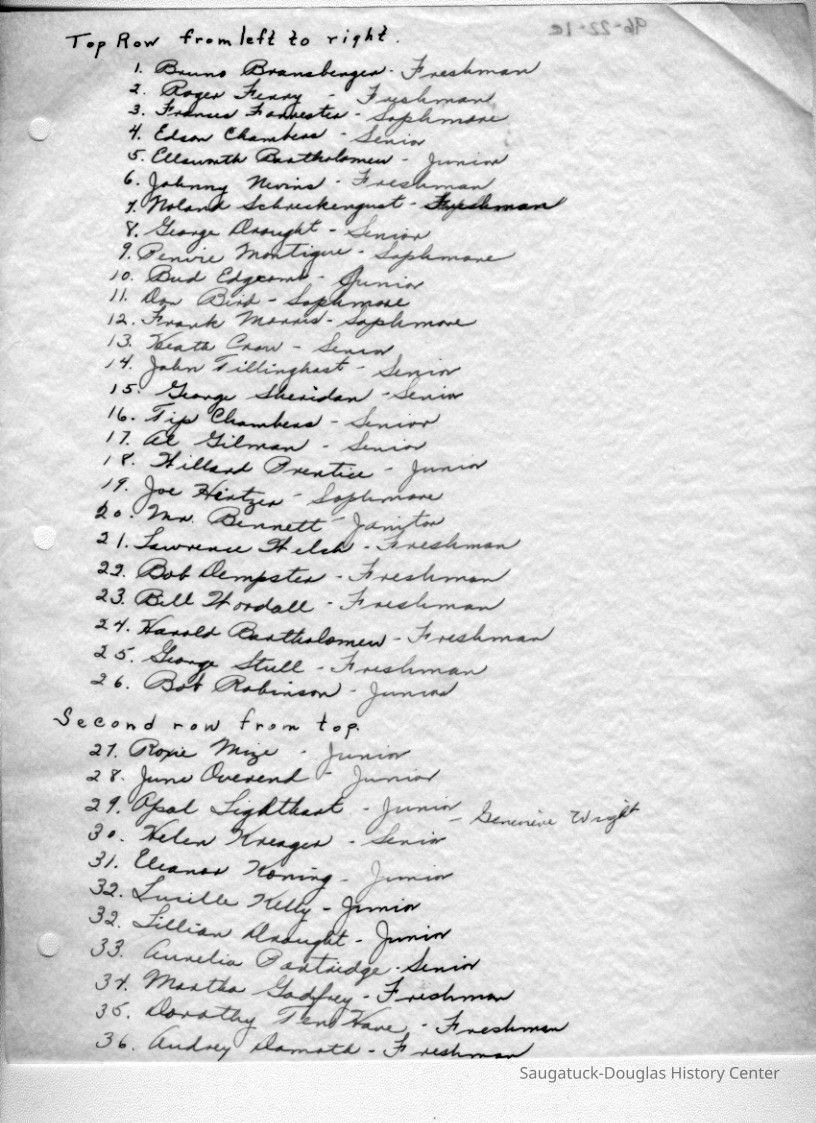 96-22-1c
Top Row from left to right.
1. Bruno Bransberger - Freshman
2. Roger Ferry - Freshman
3. Francis Forrester - Sophmore
4. Edson Chambers - Senior
5. Ellsworth Bartholomew - Junior
6. Johnny Nivins - Freshman
7. Noland Schreckengust - Freshman
8. George Drought - Senior
9. Montique - Sophmore
10. Bud Edgcomb - Junior
11. Don Bird - Sophmore
12. Frank Morris - Sophmore
13. Heath Crow - Senior
14. John Tillinghast - Senior
15. George Sheridan - Senior
16. Tip Chambers - Senior
17. Al Gilman - Senior
18. Willard Prentice - Junior
19. Joe Hirtzer - Sophmore
20. Mr. Bennett - Janitor
21. Lawrence Welsh - Freshman
22. Bob Dempster - Freshman
23. Bill Wordall - Freshman
24. Harold Bartholomew - Freshman
25. George Stull - Freshman
26. Bob Robinson - Junior
Second row from top.
27. Roxie Mize - Junior
28. June Overend - Junior
29. Opal Lighthart - Junior - Genevieve Wright
30. Helen Kreager - Senior
31. Eleanor Koning - Junior
32. Lucille Kelly - Junior
32. Lillian Drought - Junior
33. Aurelia Partridge - Senior
34. Martha Godfrey - Freshman
35. Dorothy Ten Have, - Freshman
36. Audrey Damoth - Freshman
Saugatuck-Douglas History Center